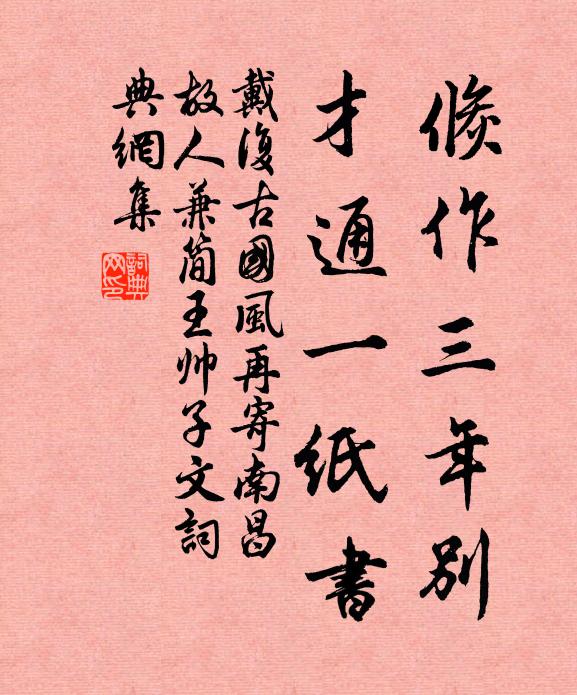 倏作三年別
才通一紙書
戴復古國風再寄南昌
故人兼簡王帅子文詞
典網集
詞典網印